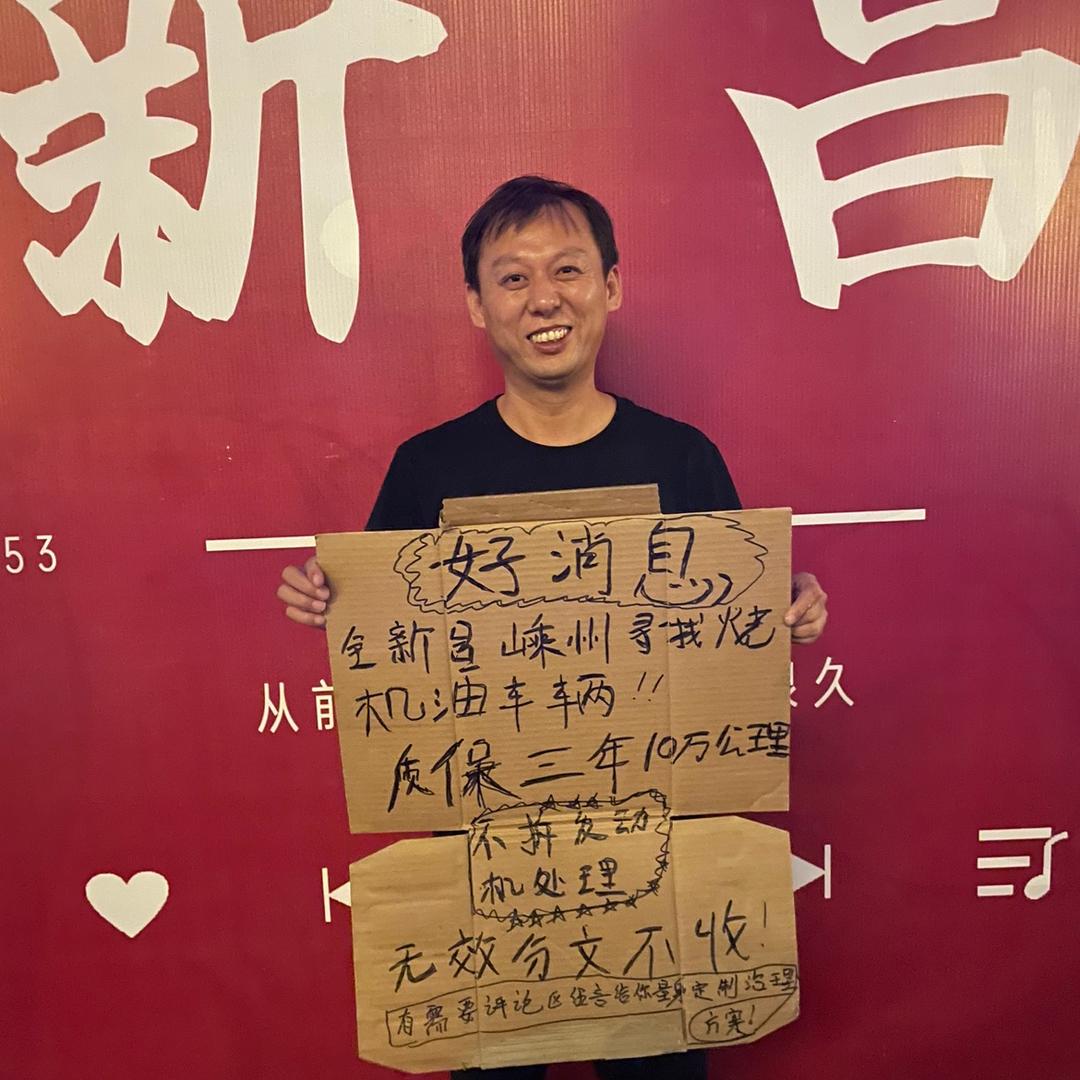 新昌
53
好消息
全新昌嵊州寻找烧
机油车辆!!
从前
很久
质保三年10万公理
不拆发动
机处理
无效分文不收!
有需要评论区留言给你量身定制治理
方案!